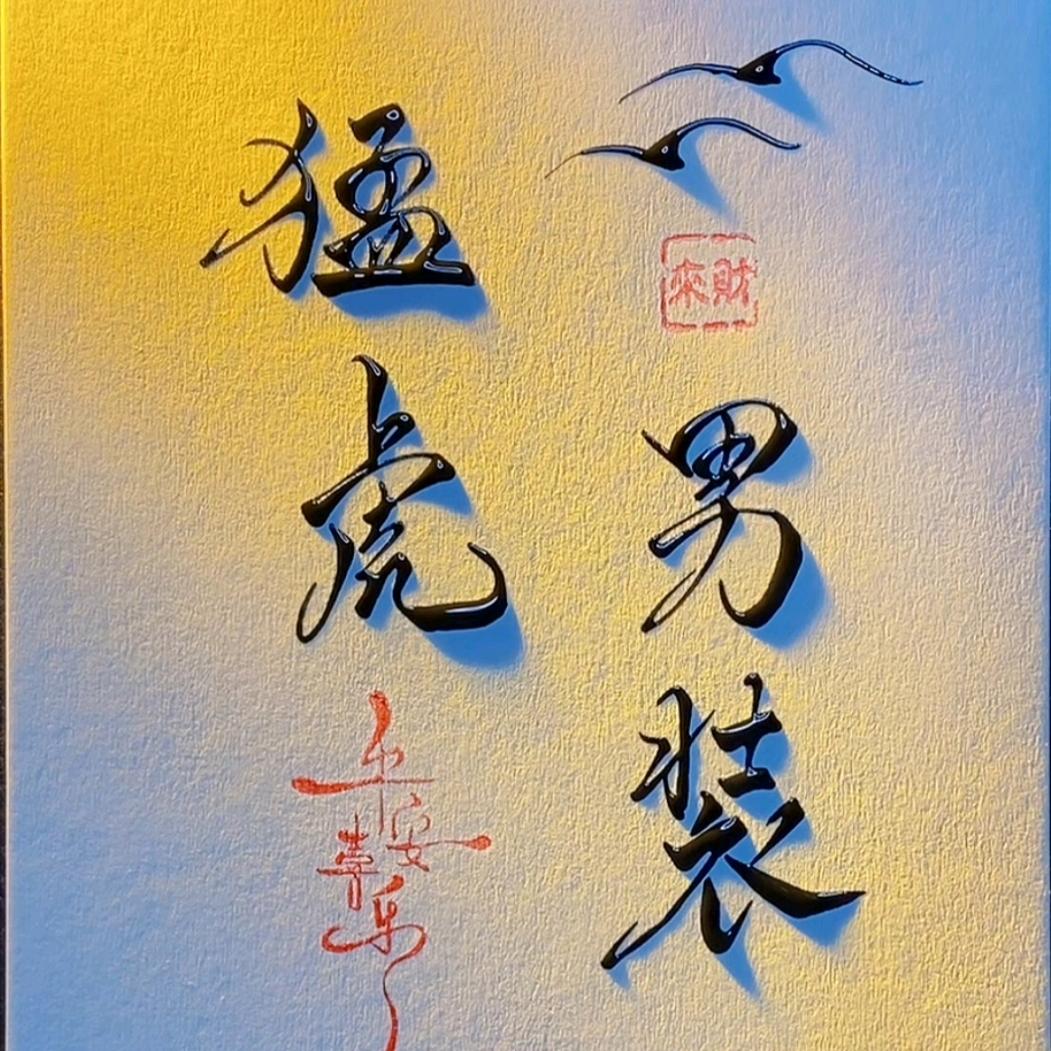 財來
男装
猛虎
平安喜乐